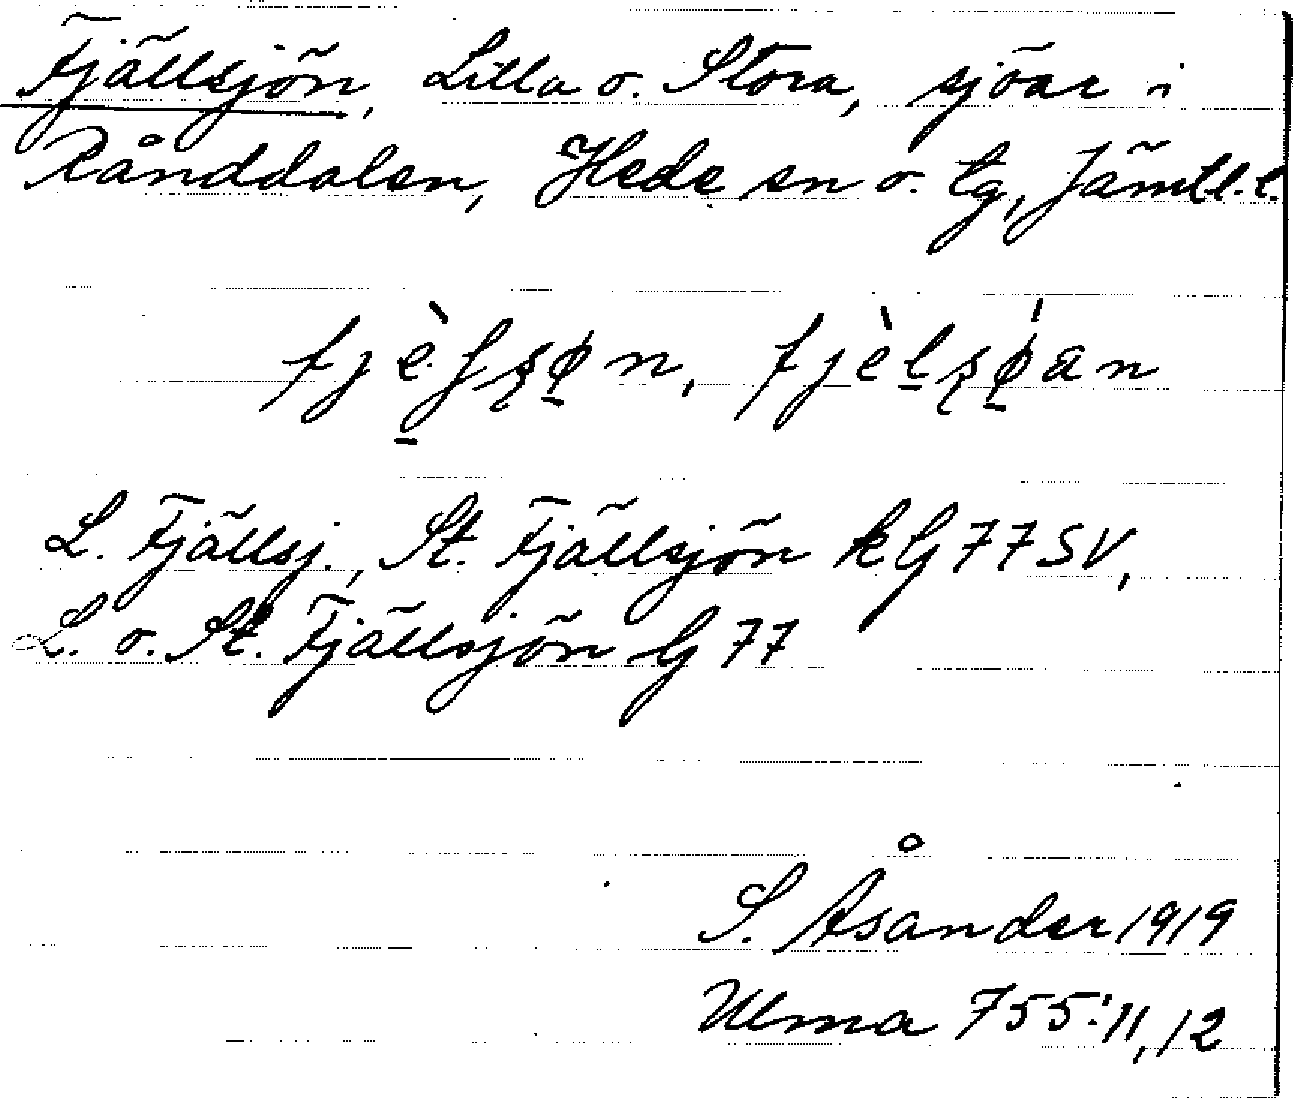 Fjällsjön, Lilla o. Stora, sjöar i
Rånddalen, Hede sn o. tg, Jämtl. l.
L. Fjällsj., St. Fjällsjön kG 77 SV,
L. o. St. Fjällsjön G 77
S. Åsander 1919
Ulma 755:11, 12